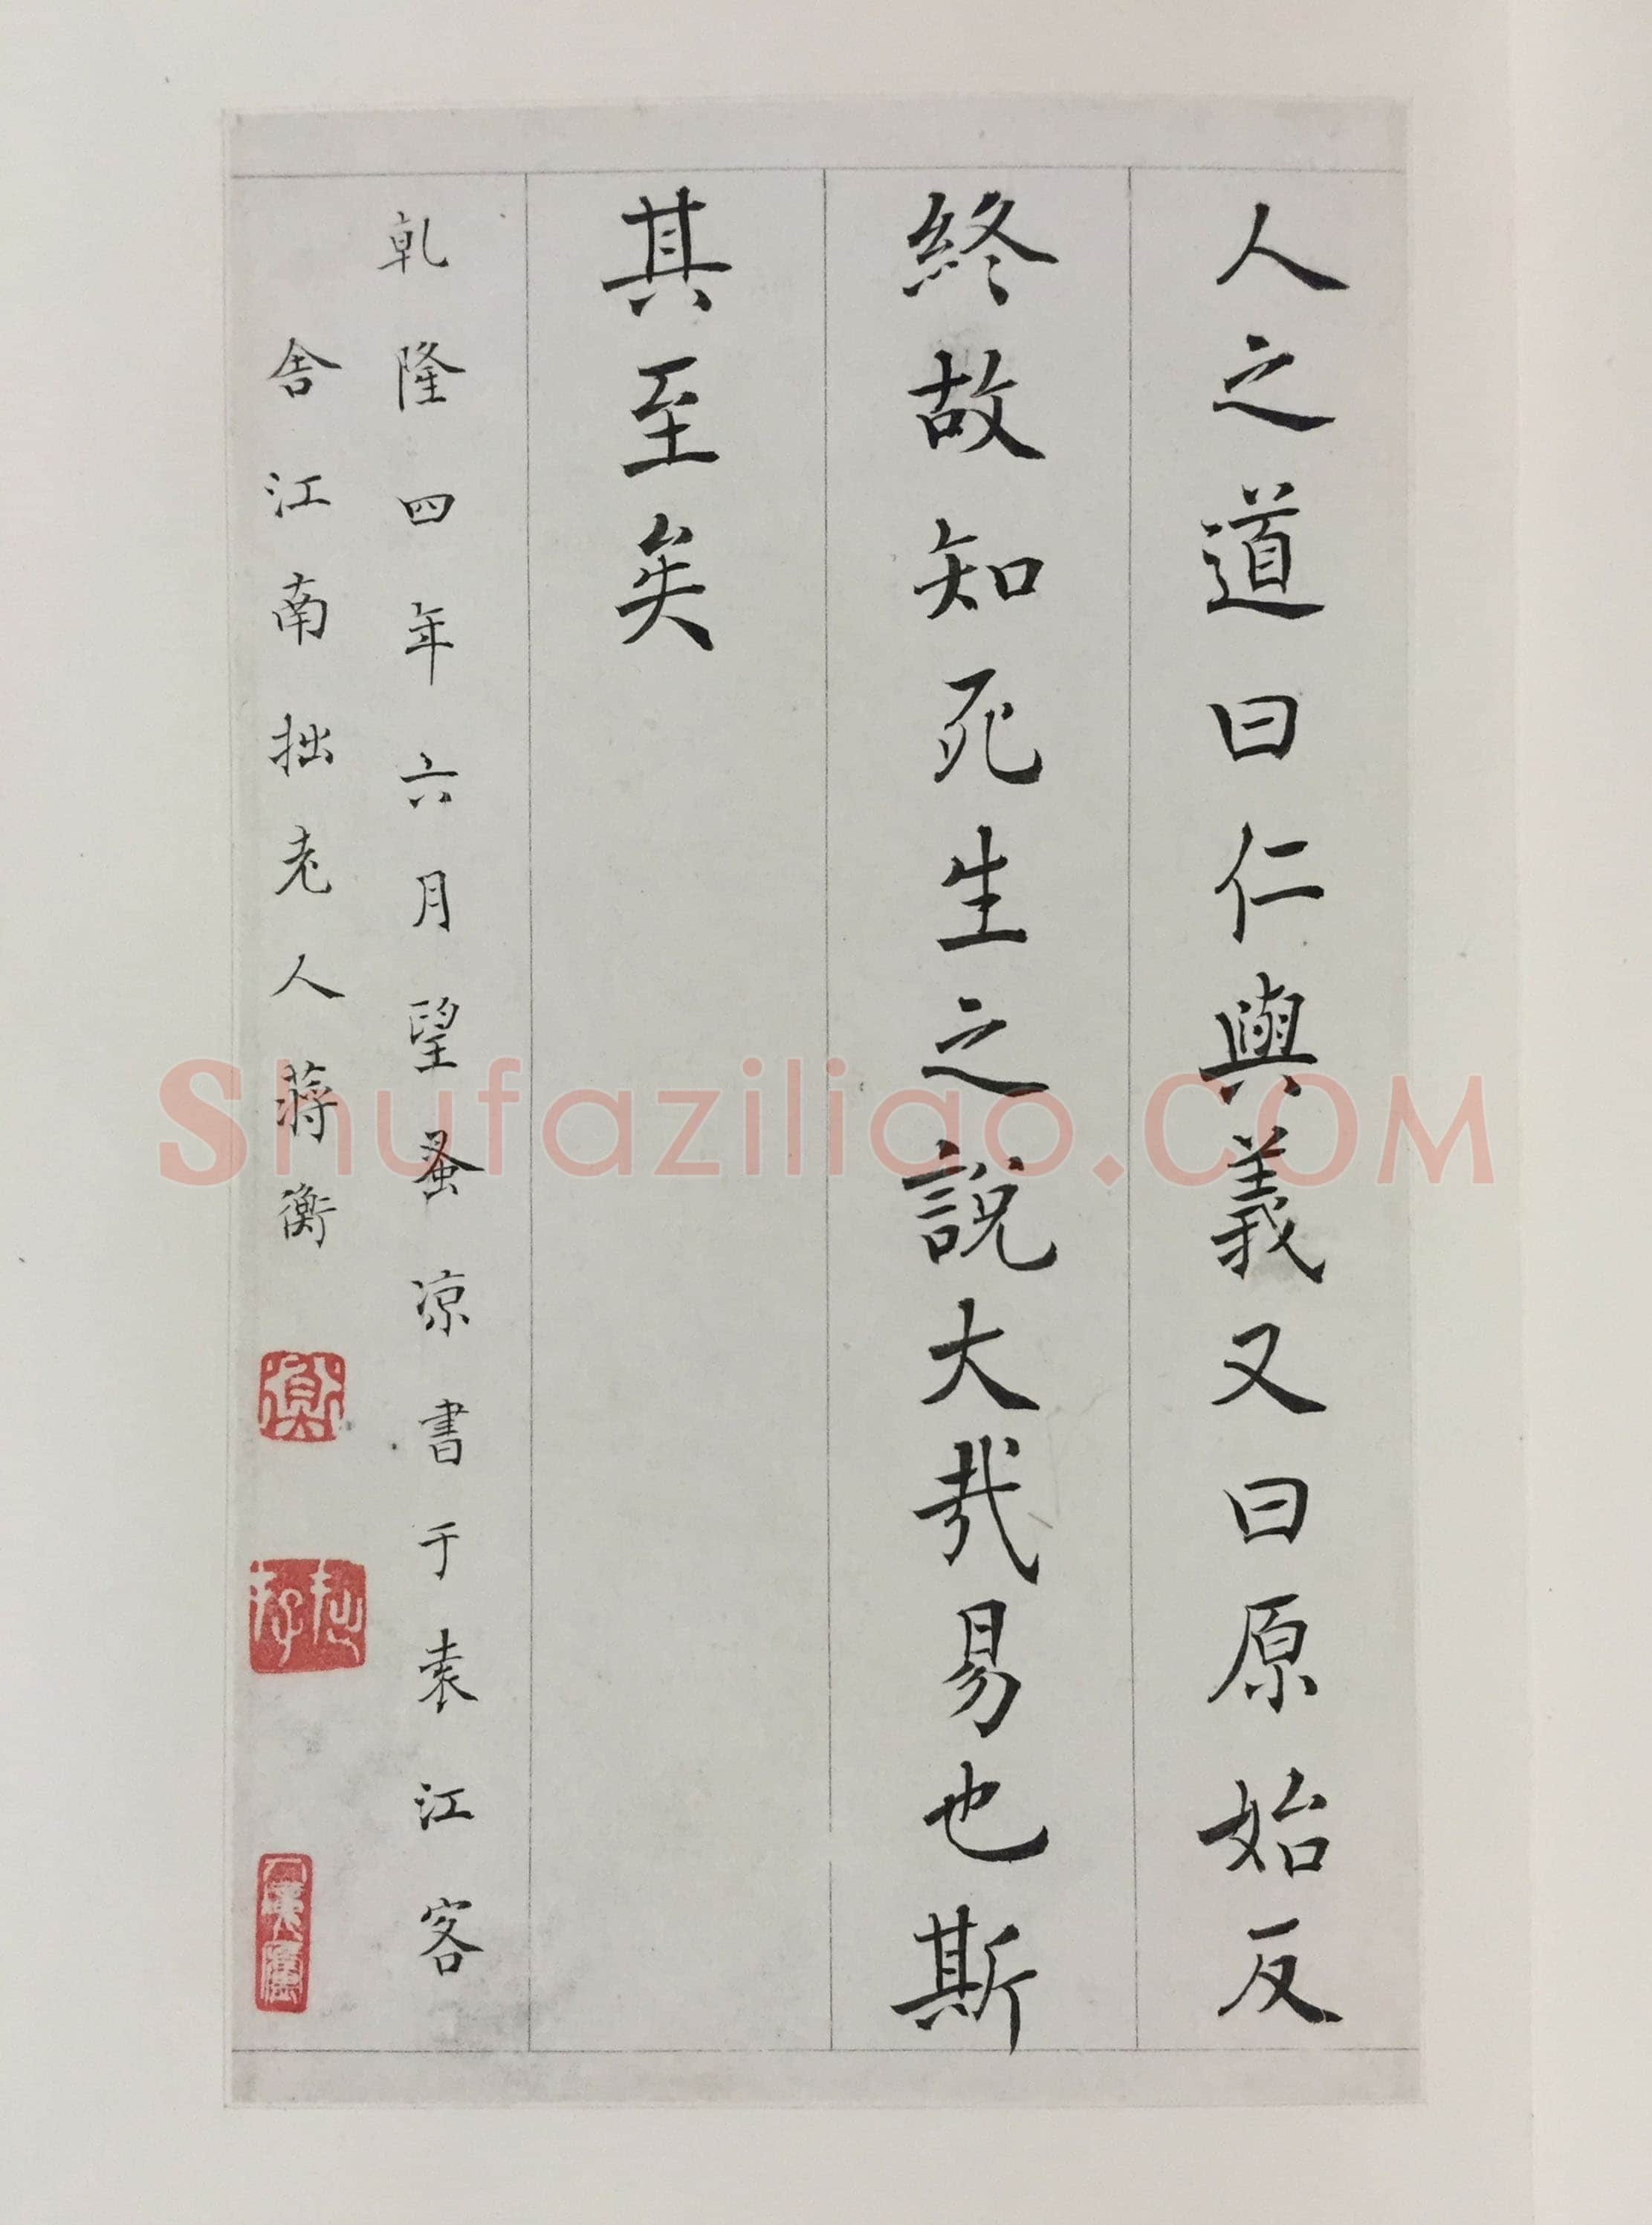 人之道曰仁與義又曰原始反
終故知死生之說大哉易也斯
其至矣
乹隆四年六月望蚤凉書于袁江客
舍江南拙老人蔣衡
衡
拙存
Shufaziliao.COM